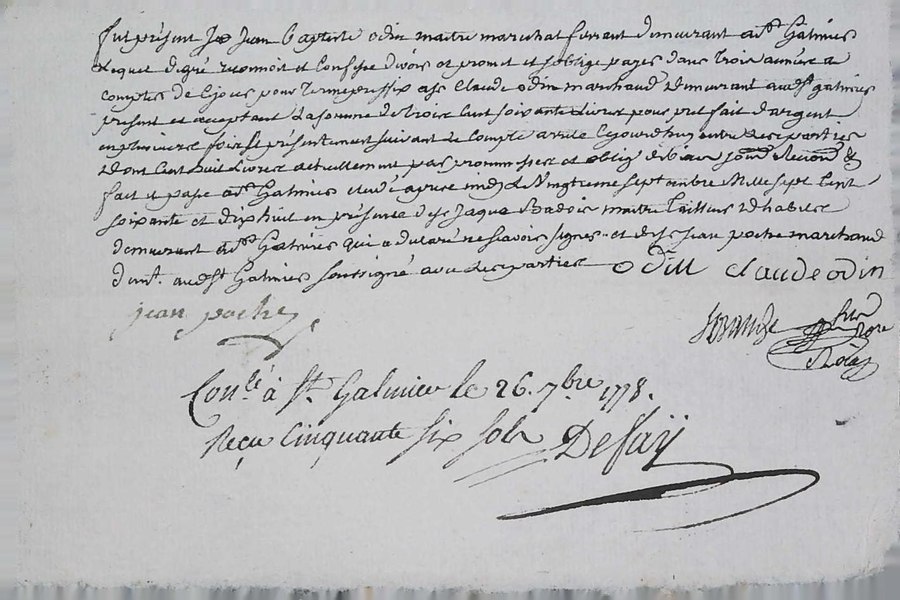 fut présent Sr Jean Baptiste odin maitre marechal ferrant demeurant a St Galmier
Lequel de gré reconnoit et Confesse devoir et promet et soblige payer dans trois année a
compter de Cejour pour terme prefix a Sr Claude odin marchand demeurant audt St galmier
present et acceptant La somme de trois Cent soixante Livres pour pret fait dargent
en plusieurs fois et présentement suivant Le Compte arrêté Cejourdhuy entre Les parties
dont Cent huit Livres actuellement par promesses et oblig
fait et passé a St Galmier etude apres midy Le Vingtieme septembre Mille sept Cent
soixante et dix huit en présence de Sr Jaque Badois maitre tailleur dhabits
demeurant a St Galmier qui a declaré ne savoir signer et de Sr Jean poche marchand
demt. audt St Galmier soussigné avec Les parties odin claude odin
jean poche
Conlé à St. Galmier le 26. 7bre 1778.
Reçu Cinquante six sols Defay